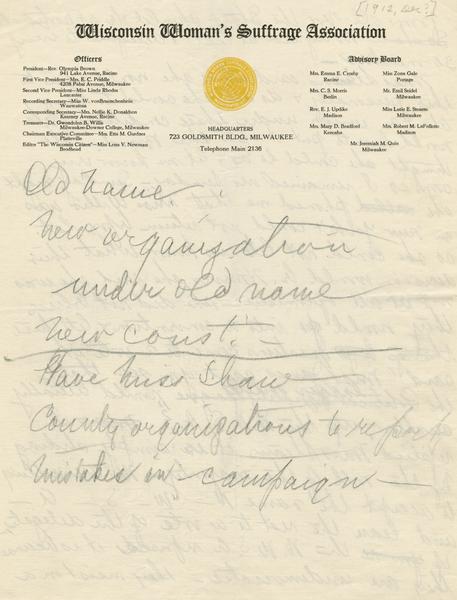 [1912, Dec?]
Wisconsin Woman's Suffrage Association
Officers
President—Rev. Olympia Brown
941 Lake Avenue, Racine
First Vice President—Mrs. E. C. Priddle
4208 Pabst Avenue, Milwaukee
Second Vice President—Miss Linda Rhodes
Lancaster
Recording Secretary—Miss W. vonBraunschweig
Corresponding Secretary—Mrs. Nellie K. Donaldson
Kearney Avenue, Racine
Treasurer—Dr. Gwendolen B. Willis
Milwaukee-Downer College, Milwaukee
Chairman Executive Committee—Mrs. Etta M. Gardner
Platteville
Editor "The Wisconsin Citizen"—Miss Lena V. Newman
Brodhead
HEADQUARTERS
723 GOLDSMITH BLDG., MILWAUKEE
Telephone Main 2136
Advisory Board
Mrs. Emma E. Crosby
Racine
Mrs. C. S. Morris
Berlin
Rev. E. J. Updike
Madison
Mrs. Mary D. Bradford
Kenosha
Miss Zona Gale
Portage
Mr. Emil Seidel
Milwaukee
Miss Lutie E. Stearns
Milwaukee
Mrs. Robert M. LaFollette
Madison
Mr. Jeremiah M. Quin
Milwaukee
Old name.
New organization
under old name
new const. —
Have Miss Shaw
County organizations to report
mistakes in campaign —